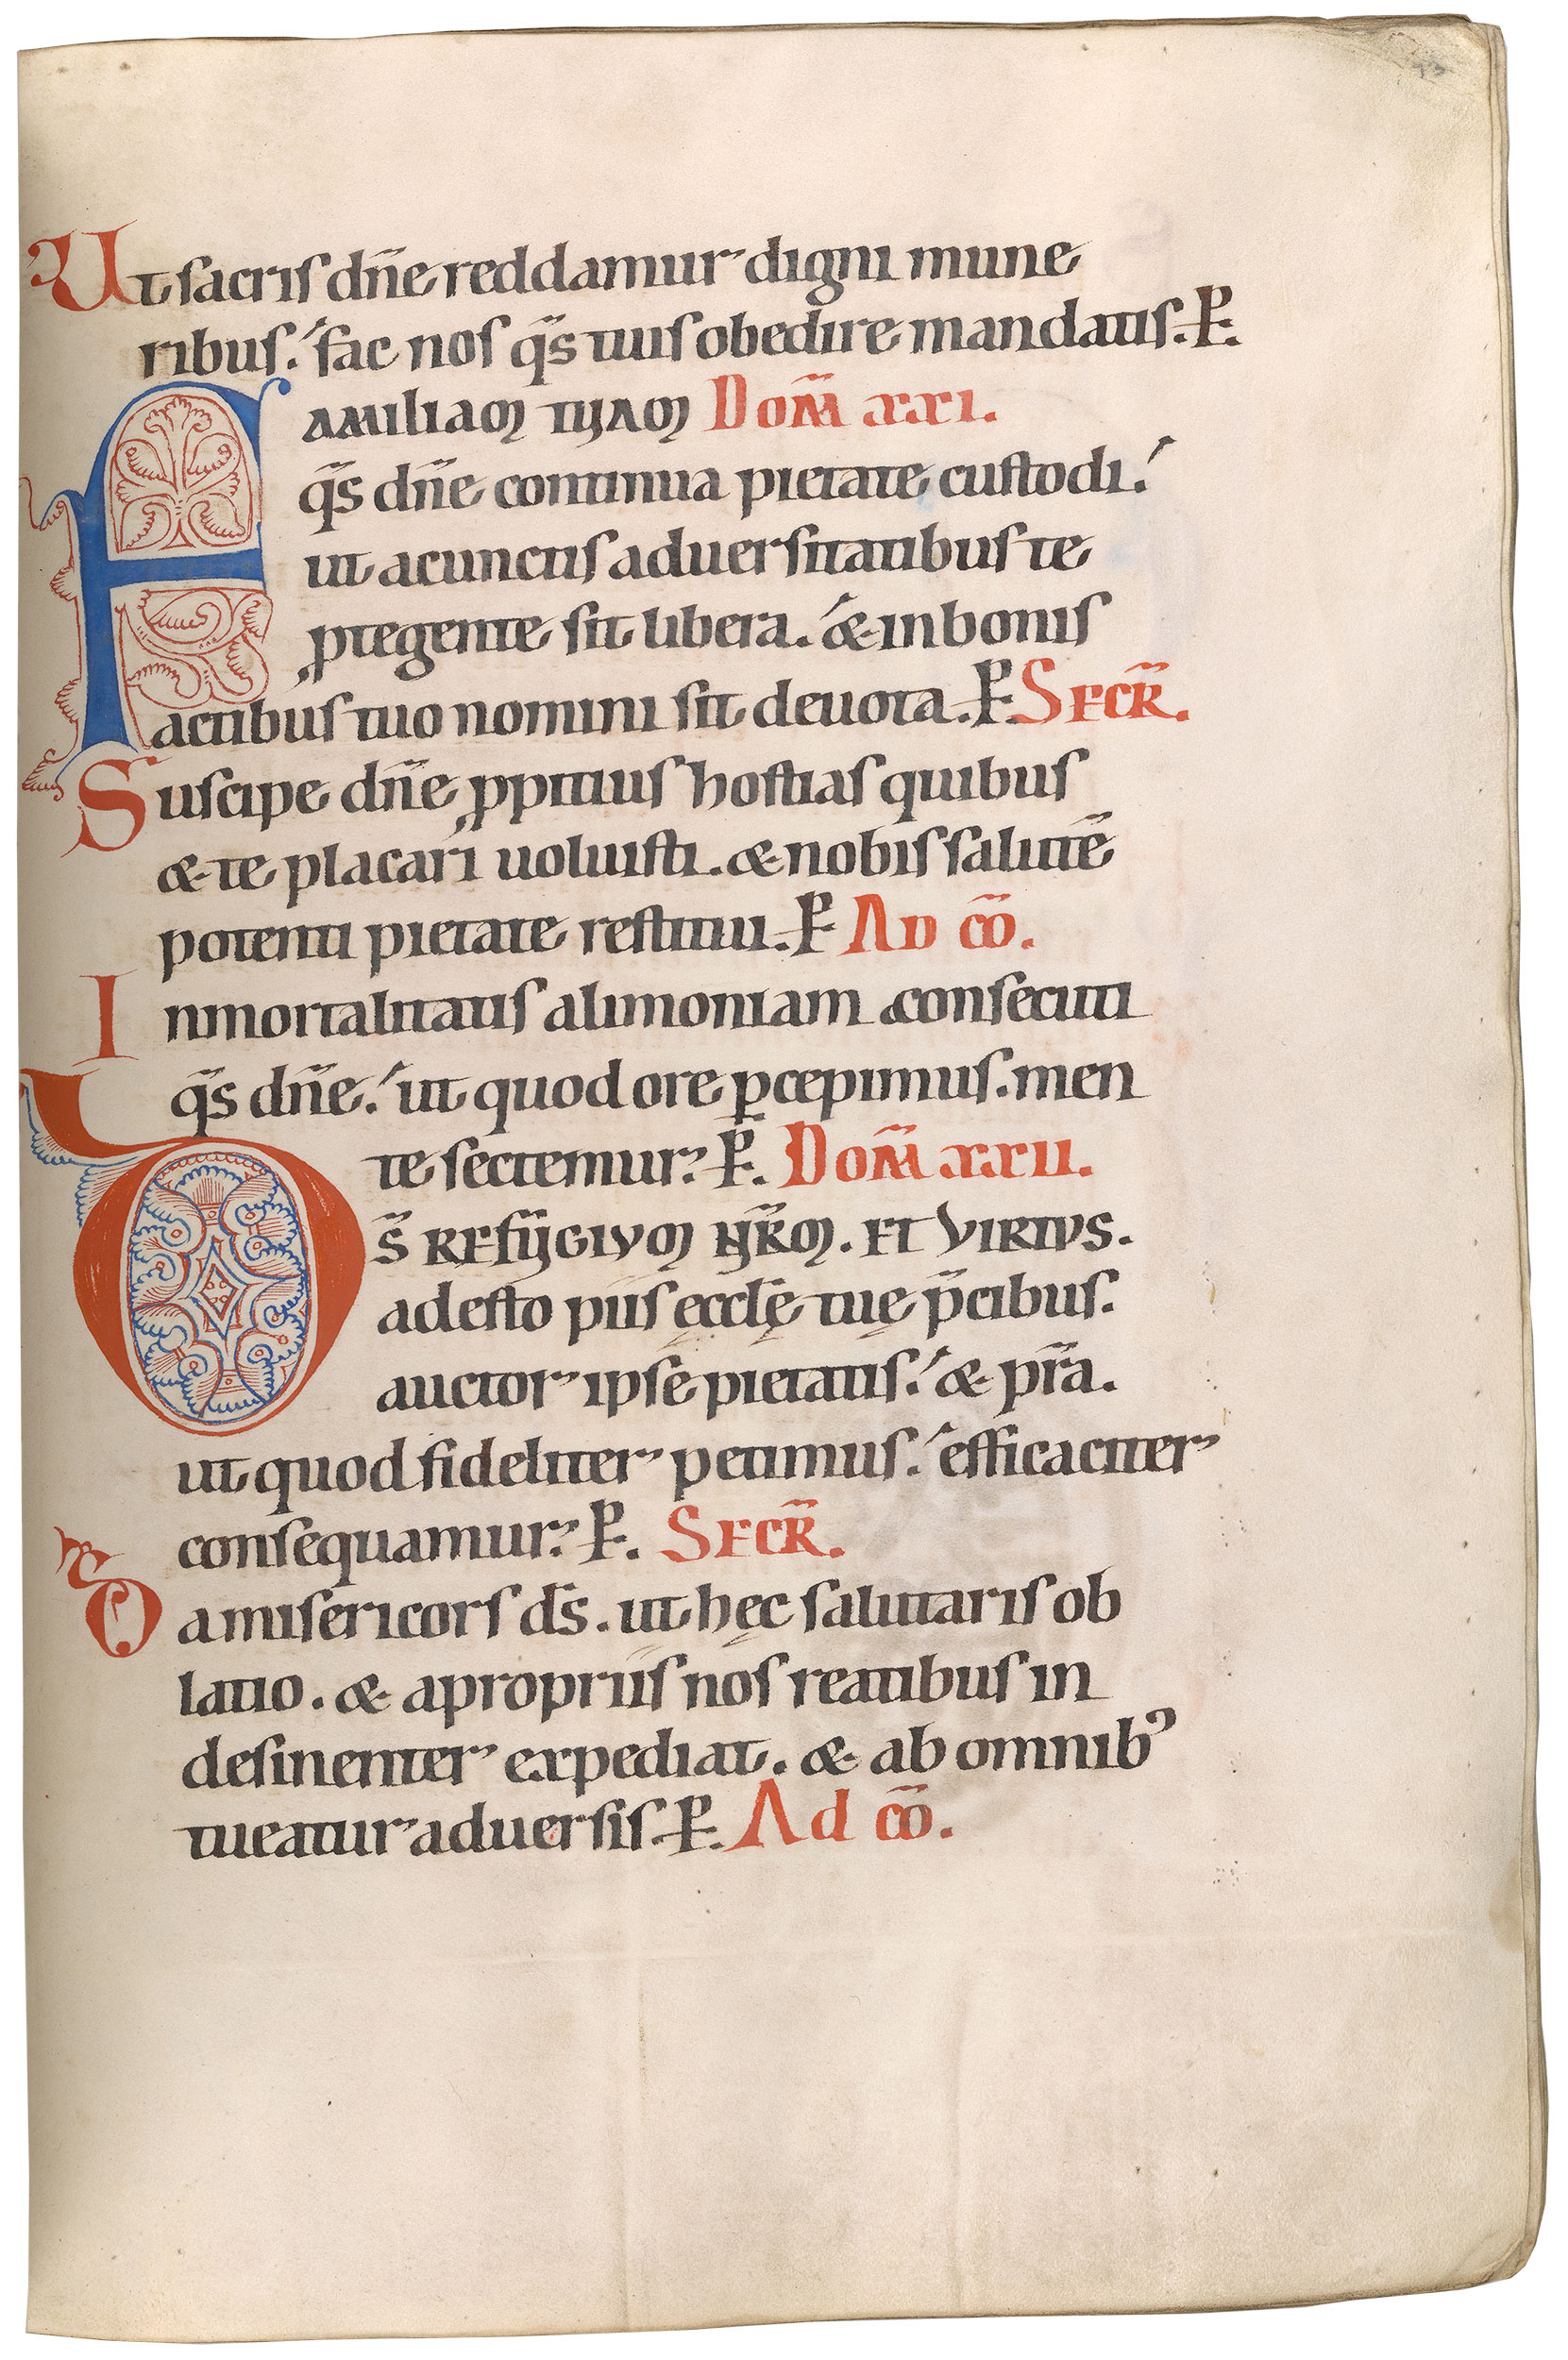 Ut sacris dn̄e reddamur digni mune
ribus. fac nos q̄s tuis obedire mandatis. P.
FAMILIAM TUAM Dom̄ xxi.
q̄s dn̄e continua pietate custodi.
ut a cunctis aduersitatibus te
ꝓtegente sit libera. & in bonis
actibus tuo nomini sit deuota. P. SECR̄.
Suscipe dn̄e ꝓpitius hostias quibus
& te placari uoluisti. & nobis salutē
potenti pietate restitui. P AD cō.
Inmortalitatis alimoniam consecuti
q̄s dn̄e. ut quod ore ꝑcepimus. men
te sectemur. P. Dom̄ xxii.
DS̄ REFUGIUM NR̄M. ET VIRTUS.
adesto piis ęcclę̄ tuę p̄cibus.
auctor ipse pietatis. & pr̄a.
ut quod fideliter petimus. efficaciter
consequamur. P. SECR̄.
Da misericors ds̄. ut hęc salutaris ob
latio. & a propriis nos reatibus in
desinenter expediat. & ab omnibꝰ
tueatur aduersis. P. Ad cō.